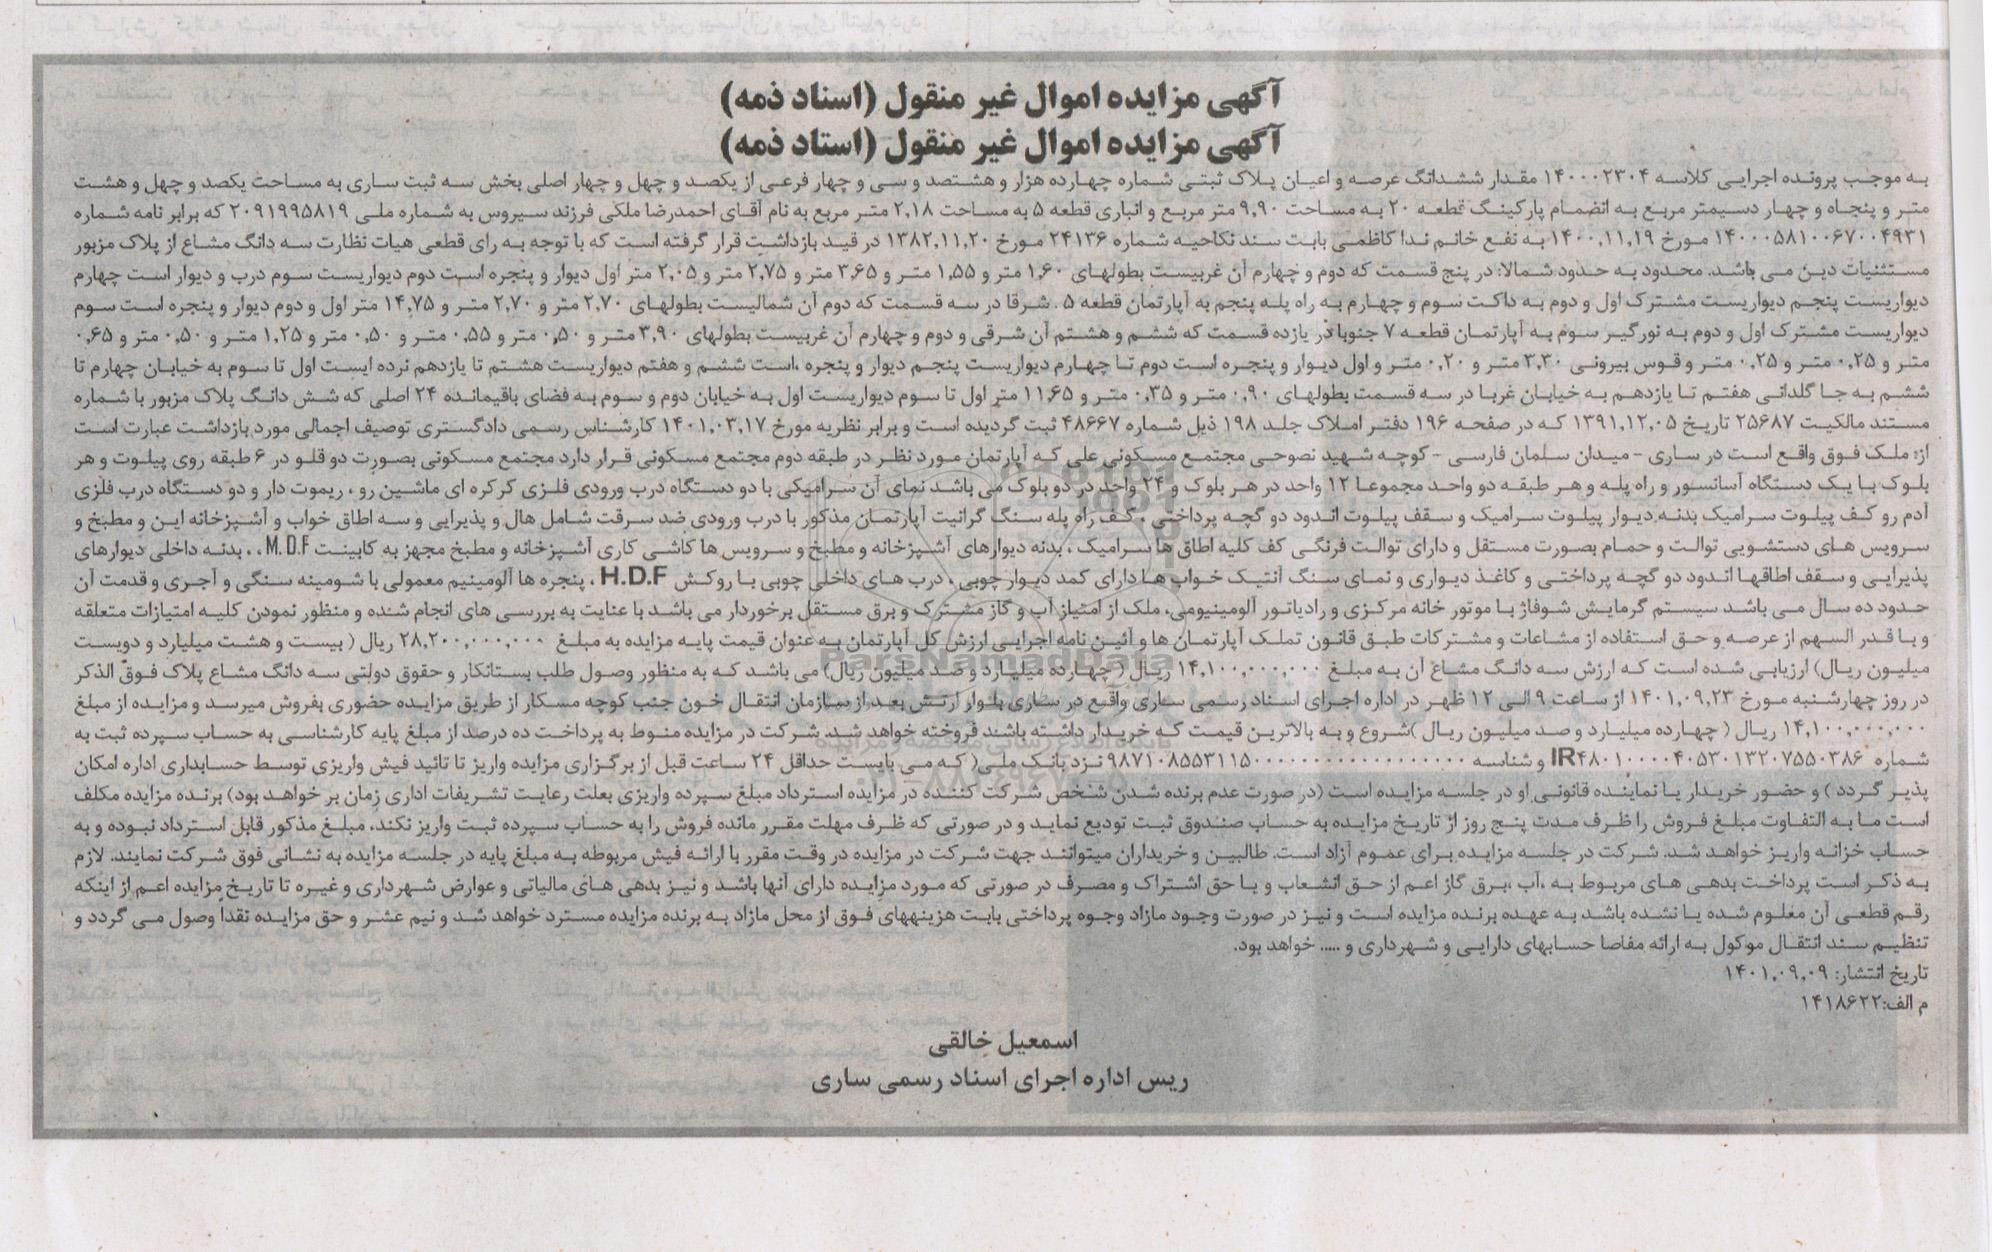 آگهی مزایده اموال غیر منقول (اسناد ذمه)
آگهی مزایده اموال غیر منقول (استاد ذمه)
به موجب پرونده اجرایی کلاسه ۱۴۰۰۰۲۳۰۴ مقدار ششدانگ عرصه و اعیان پلاک ثبتی شماره چهارده هزار و هشتصد و سی و چهار فرعی از یکصد و چهل و چهار اصلی بخش سه ثبت ساری به مساحت یکصد و چهل و هشت
متر و پنجاه و چهار دسیمتر مربع به انضمام پارکینگ قطعه ۲۰ به مساحت ۹,۹۰ متر مربع و انباری قطعه ۵ به مساحت ۲,۱۸ متر مربع به نام آقای احمدرضا ملکی فرزند سیروس به شماره ملی ۲۰۹۱۹۹۵۸۱۹ که برابر نامه شماره
۱۴۰۰۰۵۸۱۰۰۶۷۰۰۴۹۳۱ مورخ ۱۴۰۰,۱۱,۱۹ به نفع خانم ندا کاظمی بابت سند نکاحیه شماره ۲۴۱۳۶ مورخ ۱۳۸۲,۱۱,۲۰ در قید بازداشت قرار گرفته است که با توجه به رای قطعی هیات نظارت سه دانگ مشاع از پلاک مزبور
مستثنیات دین می باشد. محدود به حدود شمالا: در پنج قسمت که دوم و چهارم آن غربیست بطولهای ۱,۶۰ متر و ۱,۵۵ متر و ۳,۶۵ متر و ۲,۷۵ متر و ۲,۰۵ متر اول دیوار و پنجره است دوم دیواریست سوم درب و دیوار است چهارم
دیواریست پنجم دیواریست مشترک اول و دوم به داکت سوم و چهارم به راه پله پنجم به آپارتمان قطعه ۵ . شرقا در سه قسمت که دوم آن شمالیست بطولهای ۲,۷۰ متر و ۲,۷۰ متر و ۱۴,۷۵ متر اول و دوم دیوار و پنجره است سوم
دیواریست مشترک اول و دوم به نورگیر سوم به آپارتمان قطعه ۷ جنوبا در یازده قسمت که ششم و هشتم آن شرقی و دوم و چهارم آن غربیست بطولهای ۳,۹۰ متر و ۰,۵۰ متر و ۰,۵۵ متر و ۰,۵۰ متر و ۱,۲۵ متر و ۰,۵۰ متر و ۰,۶۵
متر و ۰,۲۵ متر و ۰,۲۵ متر و قوس بیرونی ۳,۳۰ متر و ۰,۲۰ متر و اول دیوار و پنجره است دوم تا چهارم دیواریست پنجم دیوار و پنجره ،است ششم و هفتم دیواریست هشتم تا یازدهم نرده ایست اول تا سوم به خیابان چهارم تا
ششم به جا گلدانی هفتم تا یازدهم به خیابان غربا در سه قسمت بطولهای ۰,۹۰ متر و ۰,۳۵ متر و ۱۱,۶۵ متر اول تا سوم دیواریست اول به خیابان دوم و سوم به فضای باقیمانده ۲۴ اصلی که شش دانگ پلاک مزبور با شماره
مستند مالکیت ۲۵۶۸۷ تاریخ ۱۳۹۱,۱۲,۰۵ که در صفحه ۱۹۶ دفتر املاک جلد ۱۹۸ ذیل شماره ۴۸۶۶۷ ثبت گردیده است و برابر نظریه مورخ ۱۴۰۱,۰۳,۱۷ کارشناس رسمی دادگستری توصیف اجمالی مورد بازداشت عبارت است
از: ملک فوق واقع است در ساری - میدان سلمان فارسی - کوچه شهید نصوحی مجتمع مسکونی علی که آپارتمان مورد نظر در طبقه دوم مجتمع مسکونی قرار دارد مجتمع مسکونی بصورت دو قلو در ۶ طبقه روی پیلوت و هر
بلوک با یک دستگاه آسانسور و راه پله و هر طبقه دو واحد مجموعا ۱۲ واحد در هر بلوک و ۲۴ واحد در دو بلوک می باشد نمای آن سرامیکی با دو دستگاه درب ورودی فلزی کرکره ای ماشین رو ، ریموت دار و دو دستگاه درب فلزی
آدم رو کف پیلوت سرامیک بدنه دیوار پیلوت سرامیک و سقف پیلوت اندود دو گچه پرداختی ، کف راه پله سنگ گرانیت آپارتمان مذکور با درب ورودی ضد سرقت شامل هال و پذیرایی و سه اطاق خواب و آشپزخانه این و مطبخ و
سرویس های دستشویی توالت و حمام بصورت مستقل و دارای توالت فرنگی کف کلیه اطاق ها سرامیک ، بدنه دیوارهای آشپزخانه و مطبخ و سرویس ها کاشی کاری آشپزخانه و مطبخ مجهز به کابینت M.D.F ، . بدنه داخلی دیوارهای
پذیرایی و سقف اطاقها اندود دو گچه پرداختی و کاغذ دیواری و نمای سنگ آنتیک خواب ها دارای کمد دیوار چوبی ، درب های داخلی چوبی با روکش H.D.F ، پنجره ها آلومینیم معمولی با شومینه سنگی و آجری و قدمت آن
حدود ده سال می باشد سیستم گرمایش شوفاژ با موتور خانه مرکزی و رادیاتور آلومینیومی، ملک از امتیاز آب و گاز مشترک و برق مستقل برخوردار می باشد با عنایت به بررسی های انجام شده و منظور نمودن کلیه امتیازات متعلقه
و با قدر السهم از عرصه و حق استفاده از مشاعات و مشترکات طبق قانون تملک آپارتمان ها و آئین نامه اجرایی ارزش کل آپارتمان به عنوان قیمت پایه مزایده به مبلغ ۲۸,۲۰۰,۰۰۰,۰۰۰ ریال ( بیست و هشت میلیارد و دویست
میلیون ریال) ارزیابی شده است که ارزش سه دانگ مشاع آن به مبلغ ۱۴,۱۰۰,۰۰۰,۰۰۰ ریال (چهارده میلیارد و صد میلیون ریال) می باشد که به منظور وصول طلب بستانکار و حقوق دولتی سه دانگ مشاع پلاک فوق الذکر
در روز چهارشنبه مورخ ۱۴۰۱,۰۹,۲۳ از ساعت ۹ الی ۱۲ ظهر در اداره اجرای اسناد رسمی ساری واقع در ساری بلوار ارتش بعد از سازمان انتقال خون جنب کوچه مسکار از طریق مزایده حضوری بفروش میرسد و مزایده از مبلغ
۱۴,۱۰۰,۰۰۰,۰۰۰ ریال ( چهارده میلیارد و صد میلیون ریال )شروع و به بالاترین قیمت که خریدار داشته باشند فروخته خواهد شد. شرکت در مزایده منوط به پرداخت ده درصد از مبلغ پایه کارشناسی به حساب سپرده ثبت به
شماره IR۴۸۰۱۰۰۰۰۴۰۵۳۰۱۳۲۰۷۵۵۰۳۸۶ و شناسه نزد بانک ملی( که می بایست حداقل ۲۴ ساعت قبل از برگزاری مزایده واریز تا تائید فیش واریزی توسط حسابداری اداره امکان
پذیر گردد ) و حضور خریدار یا نماینده قانونی او در جلسه مزایده است (در صورت عدم برنده شدن شخص شرکت کننده در مزایده استرداد مبلغ سپرده واریزی بعلت رعایت تشریفات اداری زمان بر خواهد بود) برنده مزایده مکلف
است ما به التفاوت مبلغ فروش را ظرف مدت پنج روز از تاریخ مزایده به حساب صندوق ثبت تودیع نماید و در صورتی که ظرف مهلت مقرر مانده فروش را به حساب سپرده ثبت واریز نکند، مبلغ مذکور قابل استرداد نبوده و به
حساب خزانه واریز خواهد شد. شرکت در جلسه مزایده برای عموم آزاد است. طالبین و خریداران میتوانند جهت شرکت در مزایده در وقت مقرر با ارائه فیش مربوطه به مبلغ پایه در جلسه مزایده به نشانی فوق شرکت نمایند. لازم
به ذکر است پرداخت بدهی های مربوط به ،آب ،برق گاز اعم از حق انشعاب و یا حق اشتراک و مصرف در صورتی که مورد مزایده دارای آنها باشد و نیز بدهی های مالیاتی و عوارض شهرداری و غیره تا تاریخ مزایده اعم از اینکه
رقم قطعی آن معلوم شده یا نشده باشد به عهده برنده مزایده است و نیز در صورت وجود مازاد وجوه پرداختی بابت هزینههای فوق از محل مازاد به برنده مزایده مسترد خواهد شد و نیم عشر و حق مزایده نقدا وصول می گردد و
تنظیم سند انتقال موکول به ارائه مفاصا حسابهای دارایی و شهرداری و ..... خواهد بود.
تاریخ انتشار: ۱۴۰۱,۰۹,۰۹
م الف:۱۴۱۸۶۲۲
اسمعیل خالقی
ریس اداره اجرای اسناد رسمی ساری
ParsNamadData